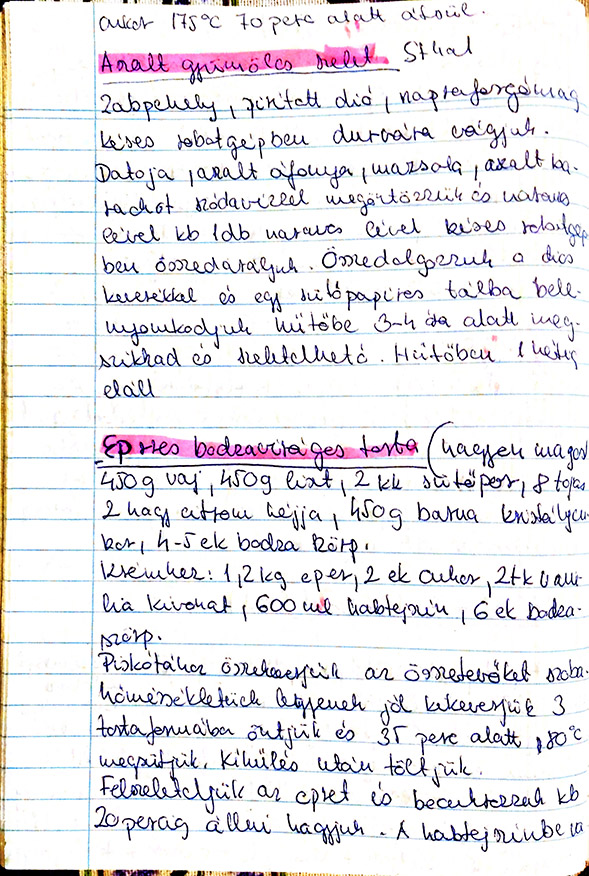 cukor 175°C 70 perc alatt átsül.
Aszalt gyümölcs szelet. Stahl
Zabpehely, pirított dió, napraforgómag
késes robotgépben durvára vágjuk.
Datolya, aszalt áfonya, mazsola, aszalt ba-
rackot szódavízzel megöntözzük és narancs
lével kb 1db narancs lével késes robotgép
ben összedaráljuk. Összedolgozzuk a diós
keverékkel és egy sütőpapíros tálba bele-
nyomkodjuk hűtőbe 3-4 óra alatt meg-
szikkad és szeletelhető. Hűtőben 1 hétig
eláll
Epres bodzavirágos torta (nagyon magas
450g vaj, 450g liszt, 2 kk sütőpor, 8 tojás
2 nagy citrom héjja, 450g barna kristálycu-
kor, 4-5 ek bodza szörp.
Krémhez: 1,2 kg eper, 2 ek cukor, 2tk vaní-
lia kivonat, 600 ml habtejszín, 6 ek bodza-
szörp.
Piskótához összekeverjük az összetevőket szoba-
hőmérsékletűek legyenek jól kikeverjük 3
tortaformába öntjük és 35 perc alatt 180°C
megsütjük. Kihűlés után töltjük.
Felszeleteljük az epret és becukrozzuk kb
20 percig állni hagyjuk. A habtejszínbe va